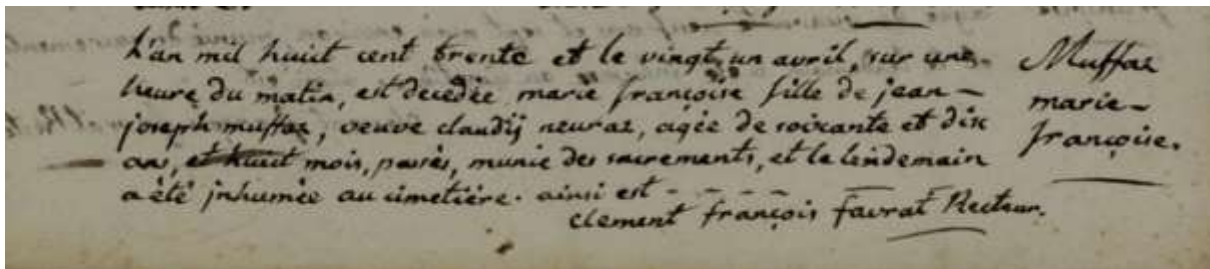 L'an mil huit cent trente et le vingt un avril, sur une
heure du matin, est decedée marie françoise fille de jean-
joseph muffaz, veuve claudij neuraz, agée de soixante et dix
ans, et huit mois, passés, munie des sacrements, et le lendemain
a été jnhumée au cimetière. ainsi est - - - - -
clement françois favrat Recteur.
Muffaz
marie-
françoise.